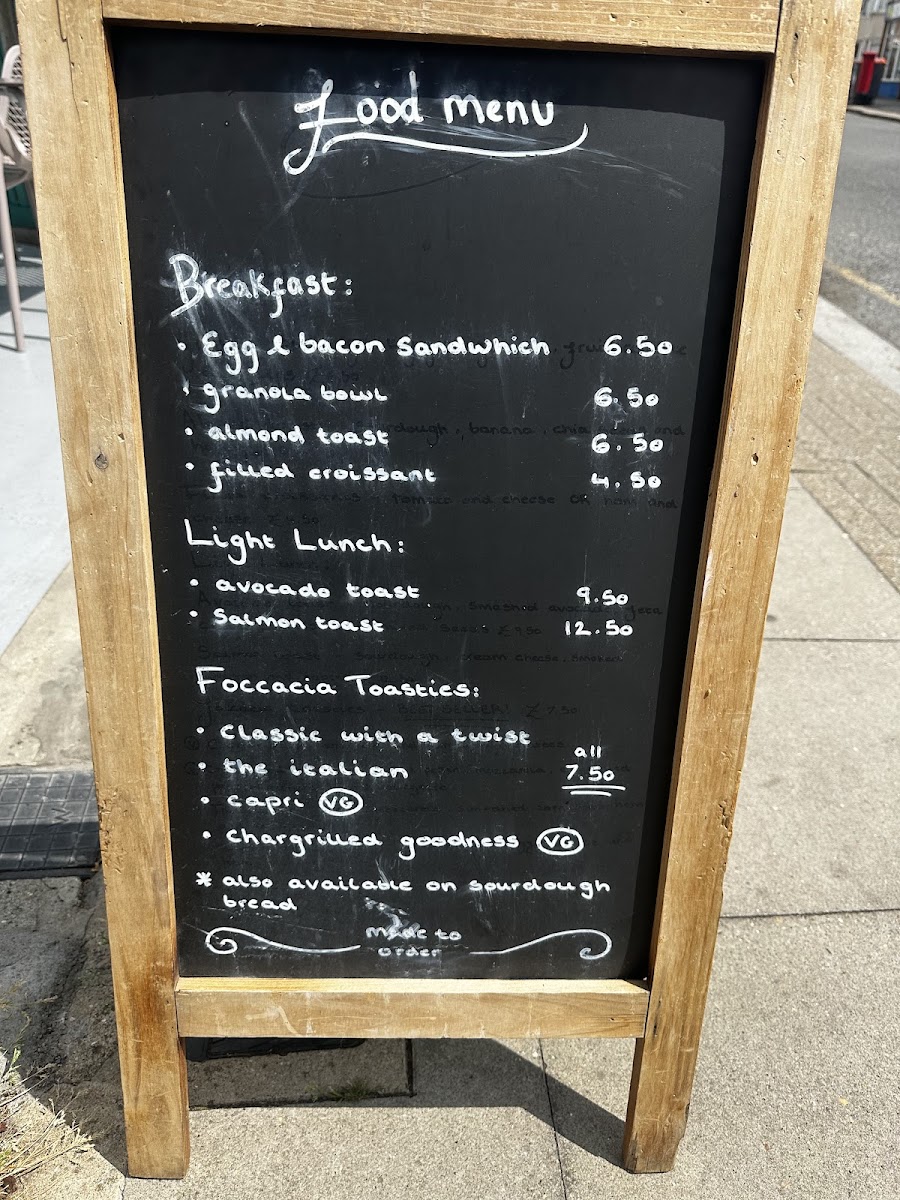 Food menu
Breakfast:
• Egg & bacon Sandwhich 6.50
• granola bowl 6.50
• almond toast 6.50
• filled croissant 4.50
Light Lunch:
• avocado toast 9.50
• Salmon toast 12.50
Foccacia Toasties:
• Classic with a twist
all
• the italian 7.50
• capri VG
• Chargrilled goodness VG
* also available on sourdough
bread
made to
order